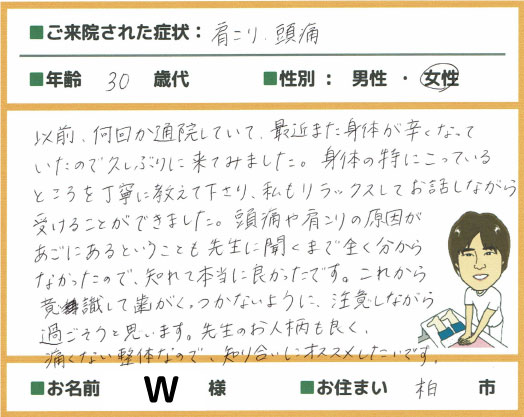 ■ご来院された症状：肩こり、頭痛
■年齢 30 歳代 ■性別： 男性 ・ 女性
以前、何回か通院していて、最近また身体が辛くなって
いたので久しぶりに来てみました。身体の特にこっている
ところを丁寧に教えて下さり、私もリラックスしてお話しながら
受けることができました。頭痛や肩こりの原因が
あごにあるということも先生に聞くまで全く分から
なかったので、知れて本当に良かったです。これから
意識して歯がくっつかないように、注意しながら
過ごそうと思います。先生のお人柄も良く、
痛くない整体なので、知り合いにオススメしたいです。
■お名前 W 様 ■お住まい 柏 市